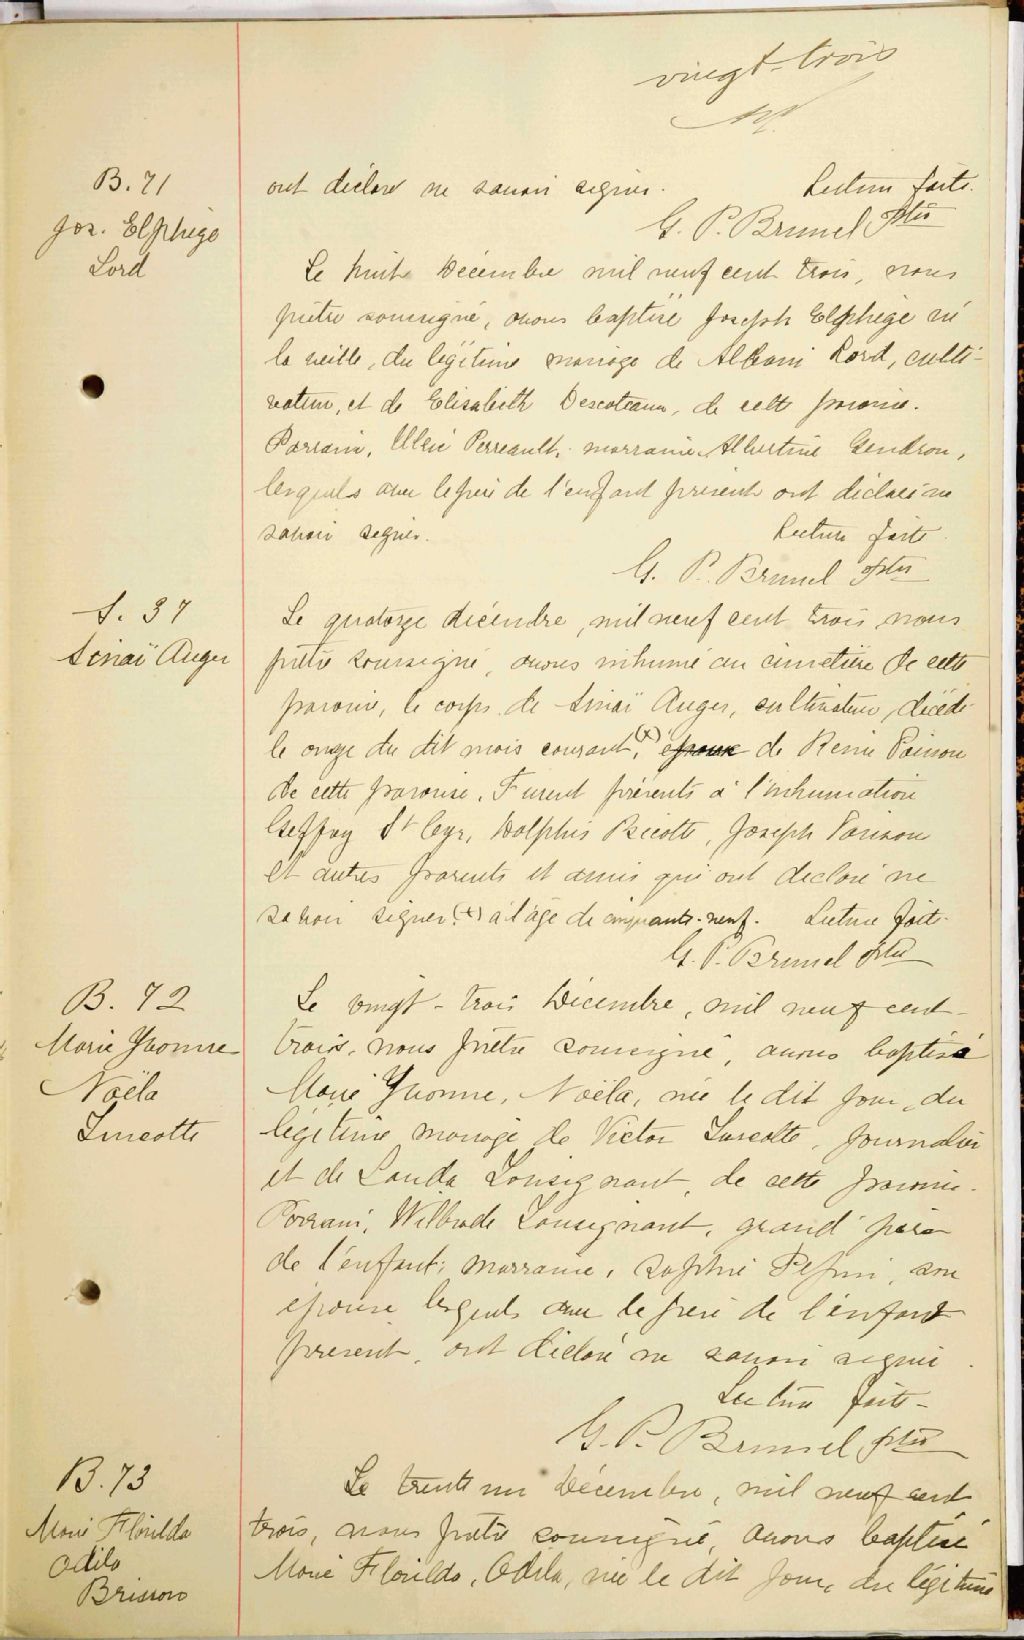 vingt-trois
B. 71
Jos. Elphège
Lord
ont déclaré ne savoir signer. Lecture faite.
G. P. Brunel ptre
Le huit Décembre mil neuf cent trois, nous
prêtre soussigné, avons baptisé Joseph Elphège né
la veille, du légitime mariage de Albani Lord, culti-
vateur, et de Elisabeth Descoteaux, de cette paroisse.
Parrain, Perreault, marraine Albertine Gendron,
lesquels avec le père de l'enfant présent ont déclaré ne
savoir signer. Lecture faite.
G. P. Brunel ptre
S. 37
Sinaï Auger
Le quatorze décembre, mil neuf cent trois nous
prêtre soussigné, avons inhumé au cimetière de cette
paroisse, le corps de Sinaï Auger, cultivateur, décédé
le onze du dit mois courant, (x) époux de Poisson
de cette paroisse. Furent présents à l'inhumation
Geffroy St Cyr, Dolphis Picotte, Joseph Poisson
et autres parents et amis qui ont déclaré ne
savoir signer. (x) à l'âge de cinquante-neuf. Lecture faite.
G. P. Brunel ptre
B. 72
Marie Yvonne
Noëla
Turcotte
Le vingt-trois Décembre, mil neuf cent
trois, nous prêtre soussigné, avons baptisé
Marie Yvonne, Noëla, née le dit jour, du
légitime mariage de Victor Turcotte, journalier
et de Landa Lonsignant, de cette paroisse.
Parrain, Wilbrode Lonsignant, grand père
de l'enfant; marraine, Sophie Pepin, son
épouse lesquels avec le père de l'enfant
présent, ont déclaré ne savoir signer.
Lecture faite-
G. P. Brunel ptre
B. 73
Marie Florilda
Odila
Brisson
Le trente un Décembre, mil neuf cent
trois, nous prêtre soussigné, avons baptisé
Marie Florilda, Odila, née le dit jour, du légitime